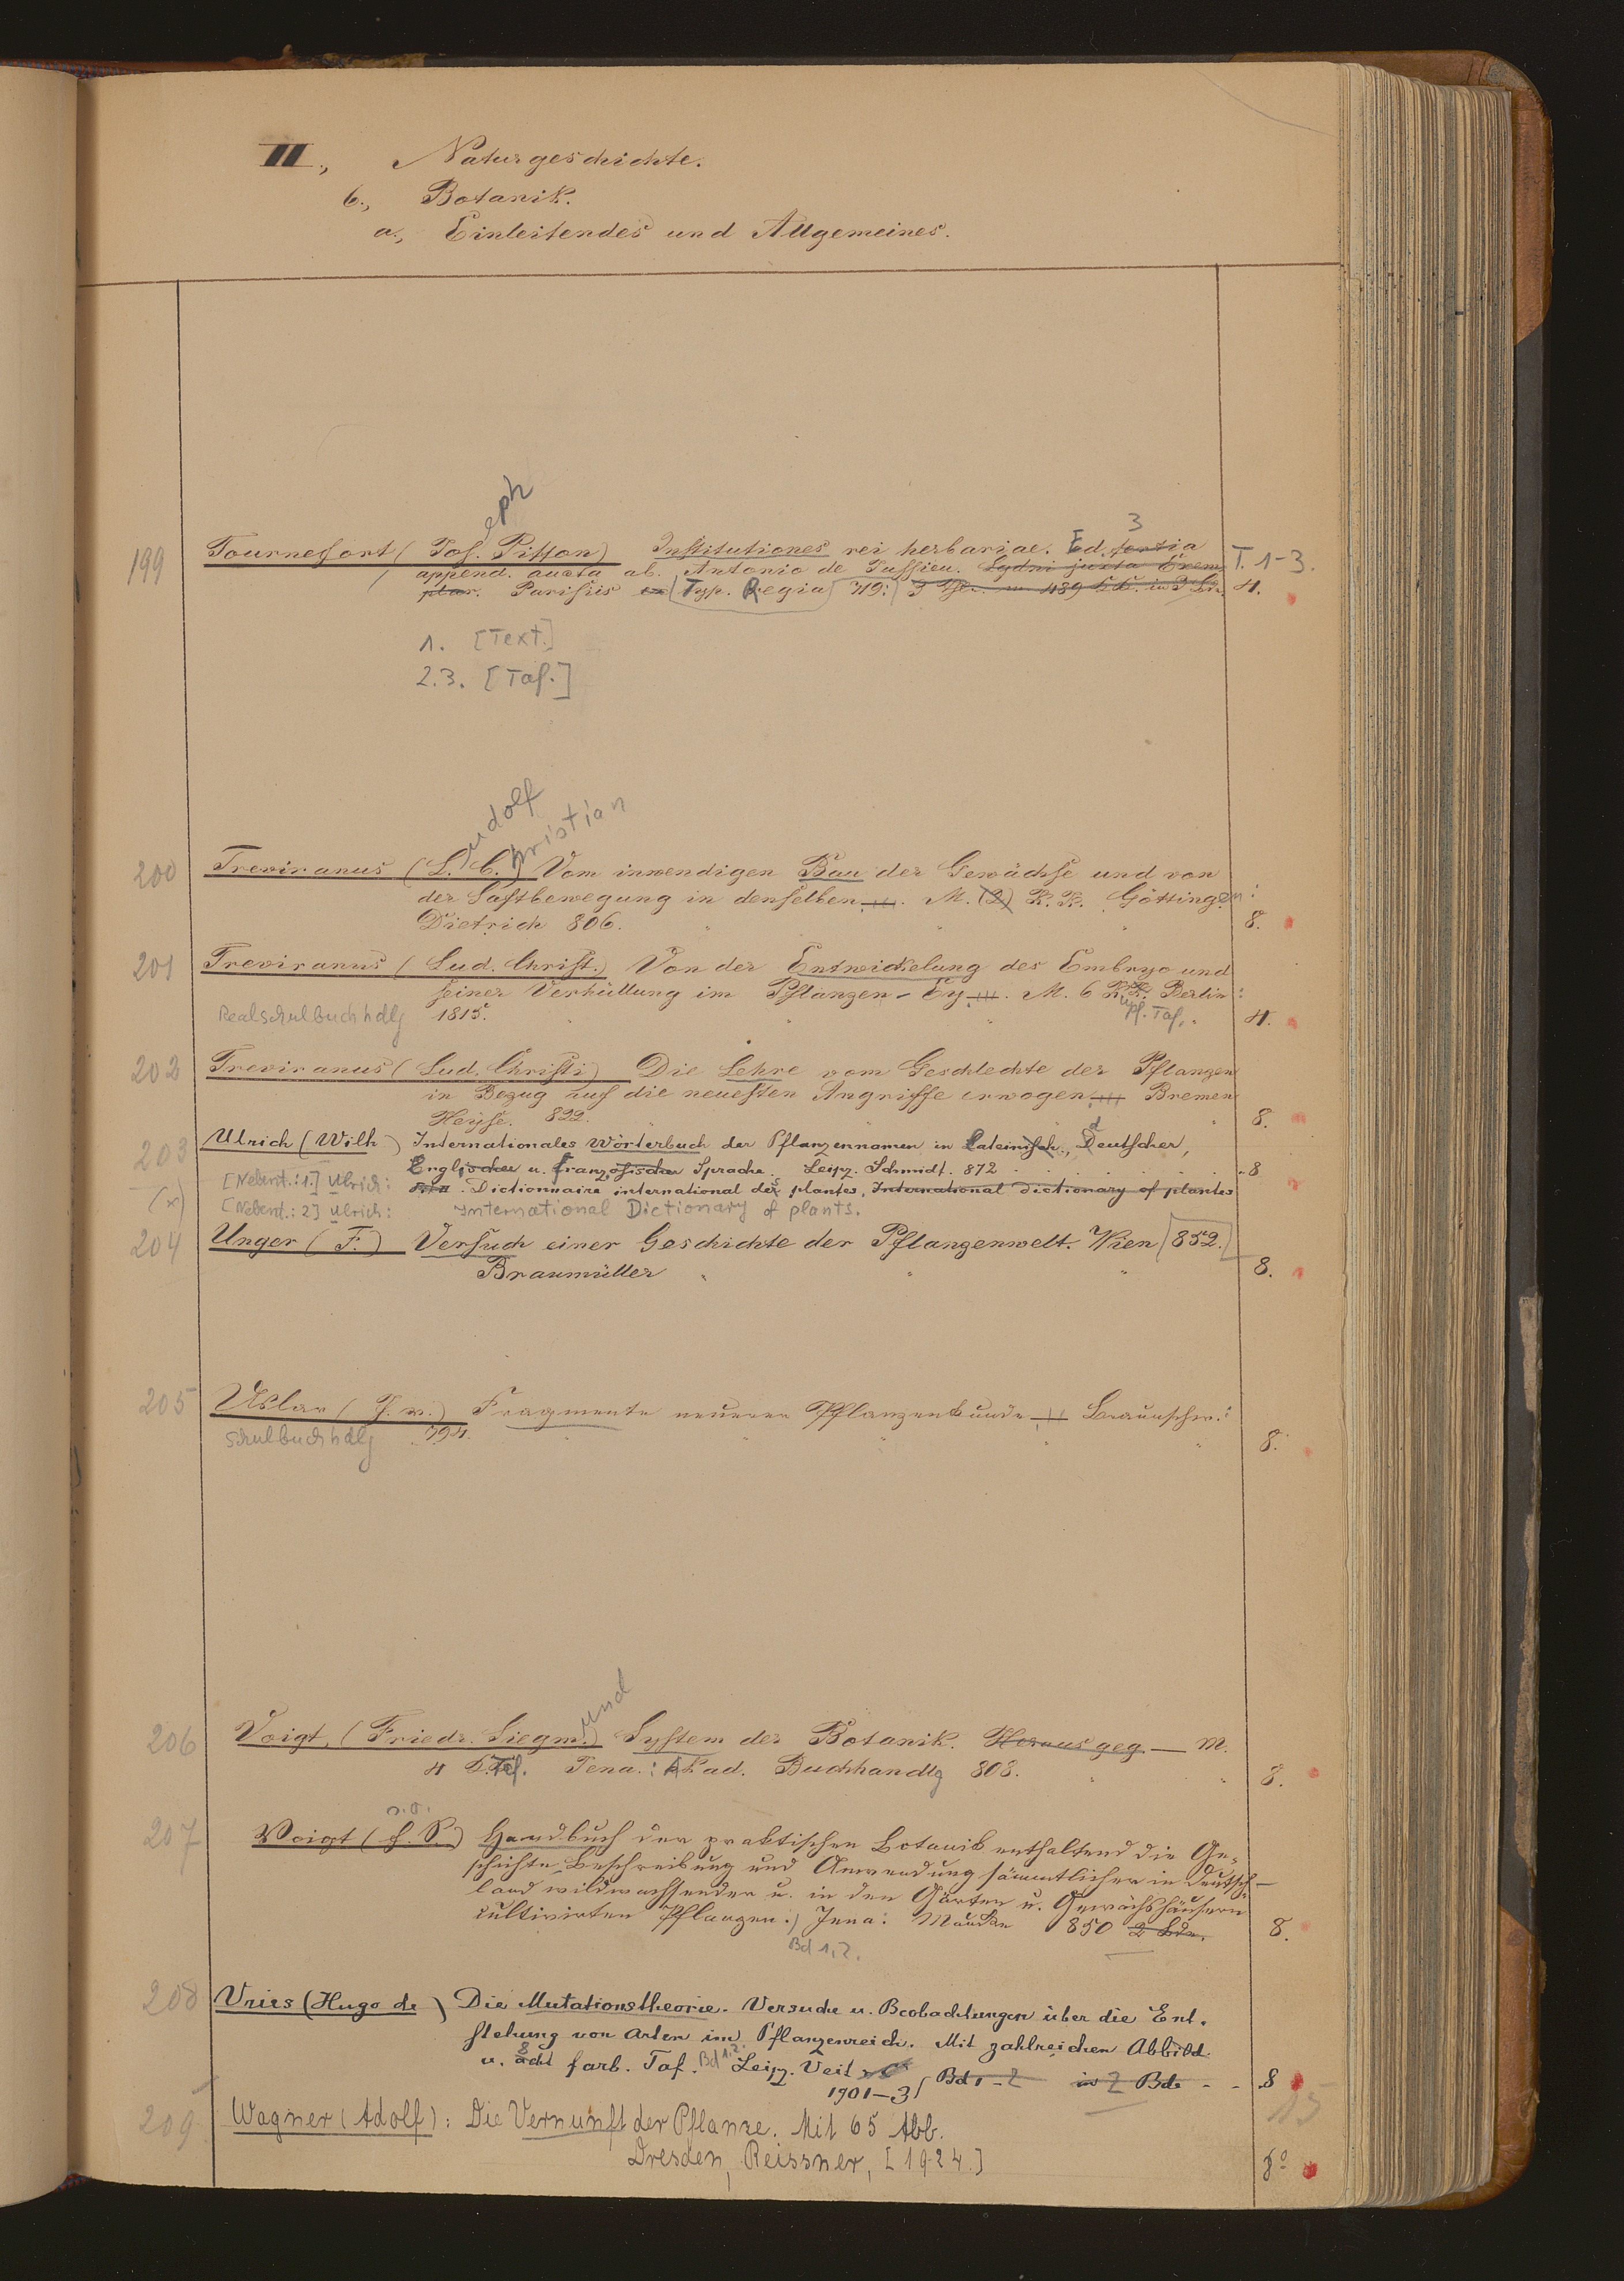 III., Naturgeschichte.
6., Botanik.
a., Einleitendes und Allgemeines.
eph
3
199 Tournefort (Jos. Pitton) Institutiones rei herbariae. Ed. tertia T. 1-3.
append. aucta ab. Antonio de Jussieu. Lugdni juxta Exem
plar. Parisiis ex Typ. Regia 719: 4.
1. [Text.]
2.3. [Taf.]
udolf
hristian
200 Treviranus (L. C.) Vom inwendigen Bau der Gewächse und von
der Saftbewegung in denselben. M. (2) K. K. Göttingen:
Dietrich 806. 8.
201 Treviranus (Lud. Christ.) Von der Entwickelung des Embryo und
seiner Verhüllung im Pflanzen-Ey. M. 6 K. K. Berlin:
Realschulbuchhdlg 1815. upf. Taf. 4.
202 Treviranus (Lud. Christi) Die Lehre vom Geschlechte der Pflanzen
in Bezug auf die neuesten Angriffe erwogen Bremen
Heyse. 822. 8.
203 Ulrich (Wilh) Internationales Wörterbuch der Pflanzennamen in Lateinisch., Deutscher,
Englischer u. französischer Sprache. Leipz. Schmidt. 872 8
[Nebent.: 1.] Ulrich: Dictionnaire international des plantes, International dictionary of plantes
(x) [Nebent.: 2] Ulrich: International Dictionary of plants.
204 Unger (F.) Versuch einer Geschichte der Pflanzenwelt. Wien 852.
Braumüller 8.
205 Uslar (J. v.) Fragmente neuerer Pflanzenkunde Braunschw.:
Schulbuchhdlg 794. 8.
und
206 Voigt, (Friedr. Siegm.) System der Botanik. Herausgeg. — M.
4 K. Taf. Jena.: Akad. Buchhandlg 808. 8.
207 Voigt (F. S.) Handbuch der praktischen Botanik enthaltend die Ge-
schichte, Beschreibung und Anwendung sämmtlicher in Deutsch-
land wildwachsenden u. in den Gärten u. Gewächshäusern
cultivirten Pflanzen.) Jena: Maucke 850 2 Bde. 8.
Bd 1,2.
208 Vries (Hugo de) Die Mutationstheorie. Versuche u. Beobachtungen über die Ent-
stehung von Arten im Pflanzenreich. Mit zahlreichen Abbild.
u. acht 8 farb. Taf. Bd 1,2. Leipz. Veit & C
1901-3 Bd 1-2 in 2 Bde - - 8
15
209 Wagner (Adolf): Die Vernunft der Pflanze. Mit 65 Abb.
Dresden, Reissner, [1924.] 8°